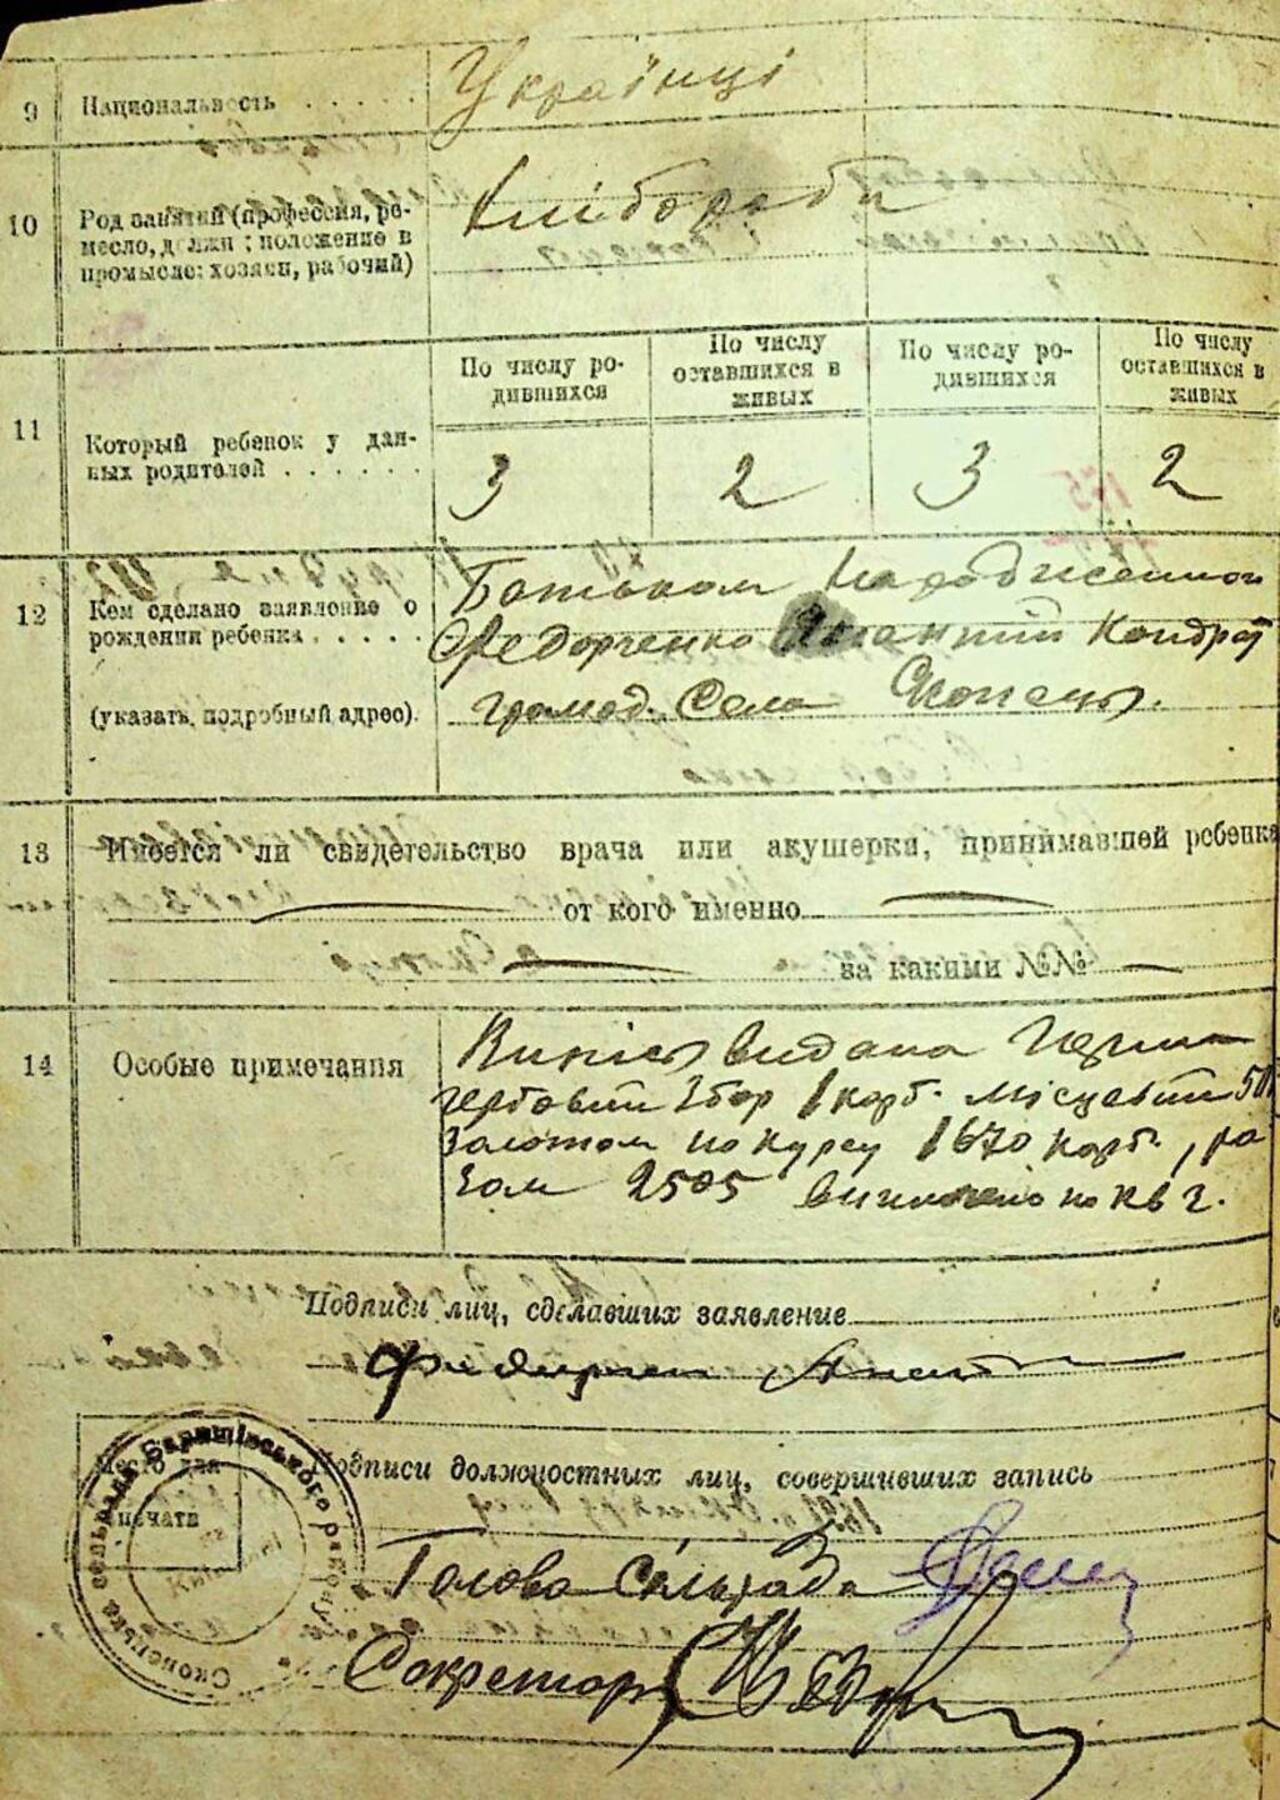 9 Национальность . . . . . Українці
10 Род занятий (профессия, ре-
месло, должн; положение в
промысле: хозяин, рабочий)
Хлібороби
По числу ро-
дившихся
По числу
оставшихся в
живых
По числу ро-
дившихся
По числу
оставшихся в
живых
11 Который ребенок у дан-
ных родителей . . . . . .
3 2 3 2
12 Кем сделано заявление о
рождении ребенка . . . . .
(указать подробный адрес).
Батьком
Федорченко Кондрат
громад. Села Скопець.
13 Имеется ли свидетельство врача или акушерки, принимавшей ребенка
от кого именно
за какими №№
14 Особые примечания
Випис видана
гербовий збор 1 карб. місцевий 50
золотом по курсу 1670 карб., ра
зом 2505 по кв г.
Подписи лиц, сделавших заявление
Место для
печати
Подписи должностных лиц, совершивших запись
Голова Сільради
Секретар
Скопецька сельрада Баришівського району